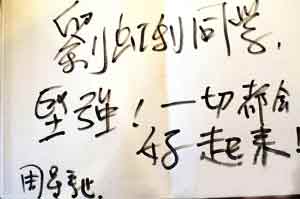 劉虹利同学,
堅強！一切都会
好起来！
周星馳.